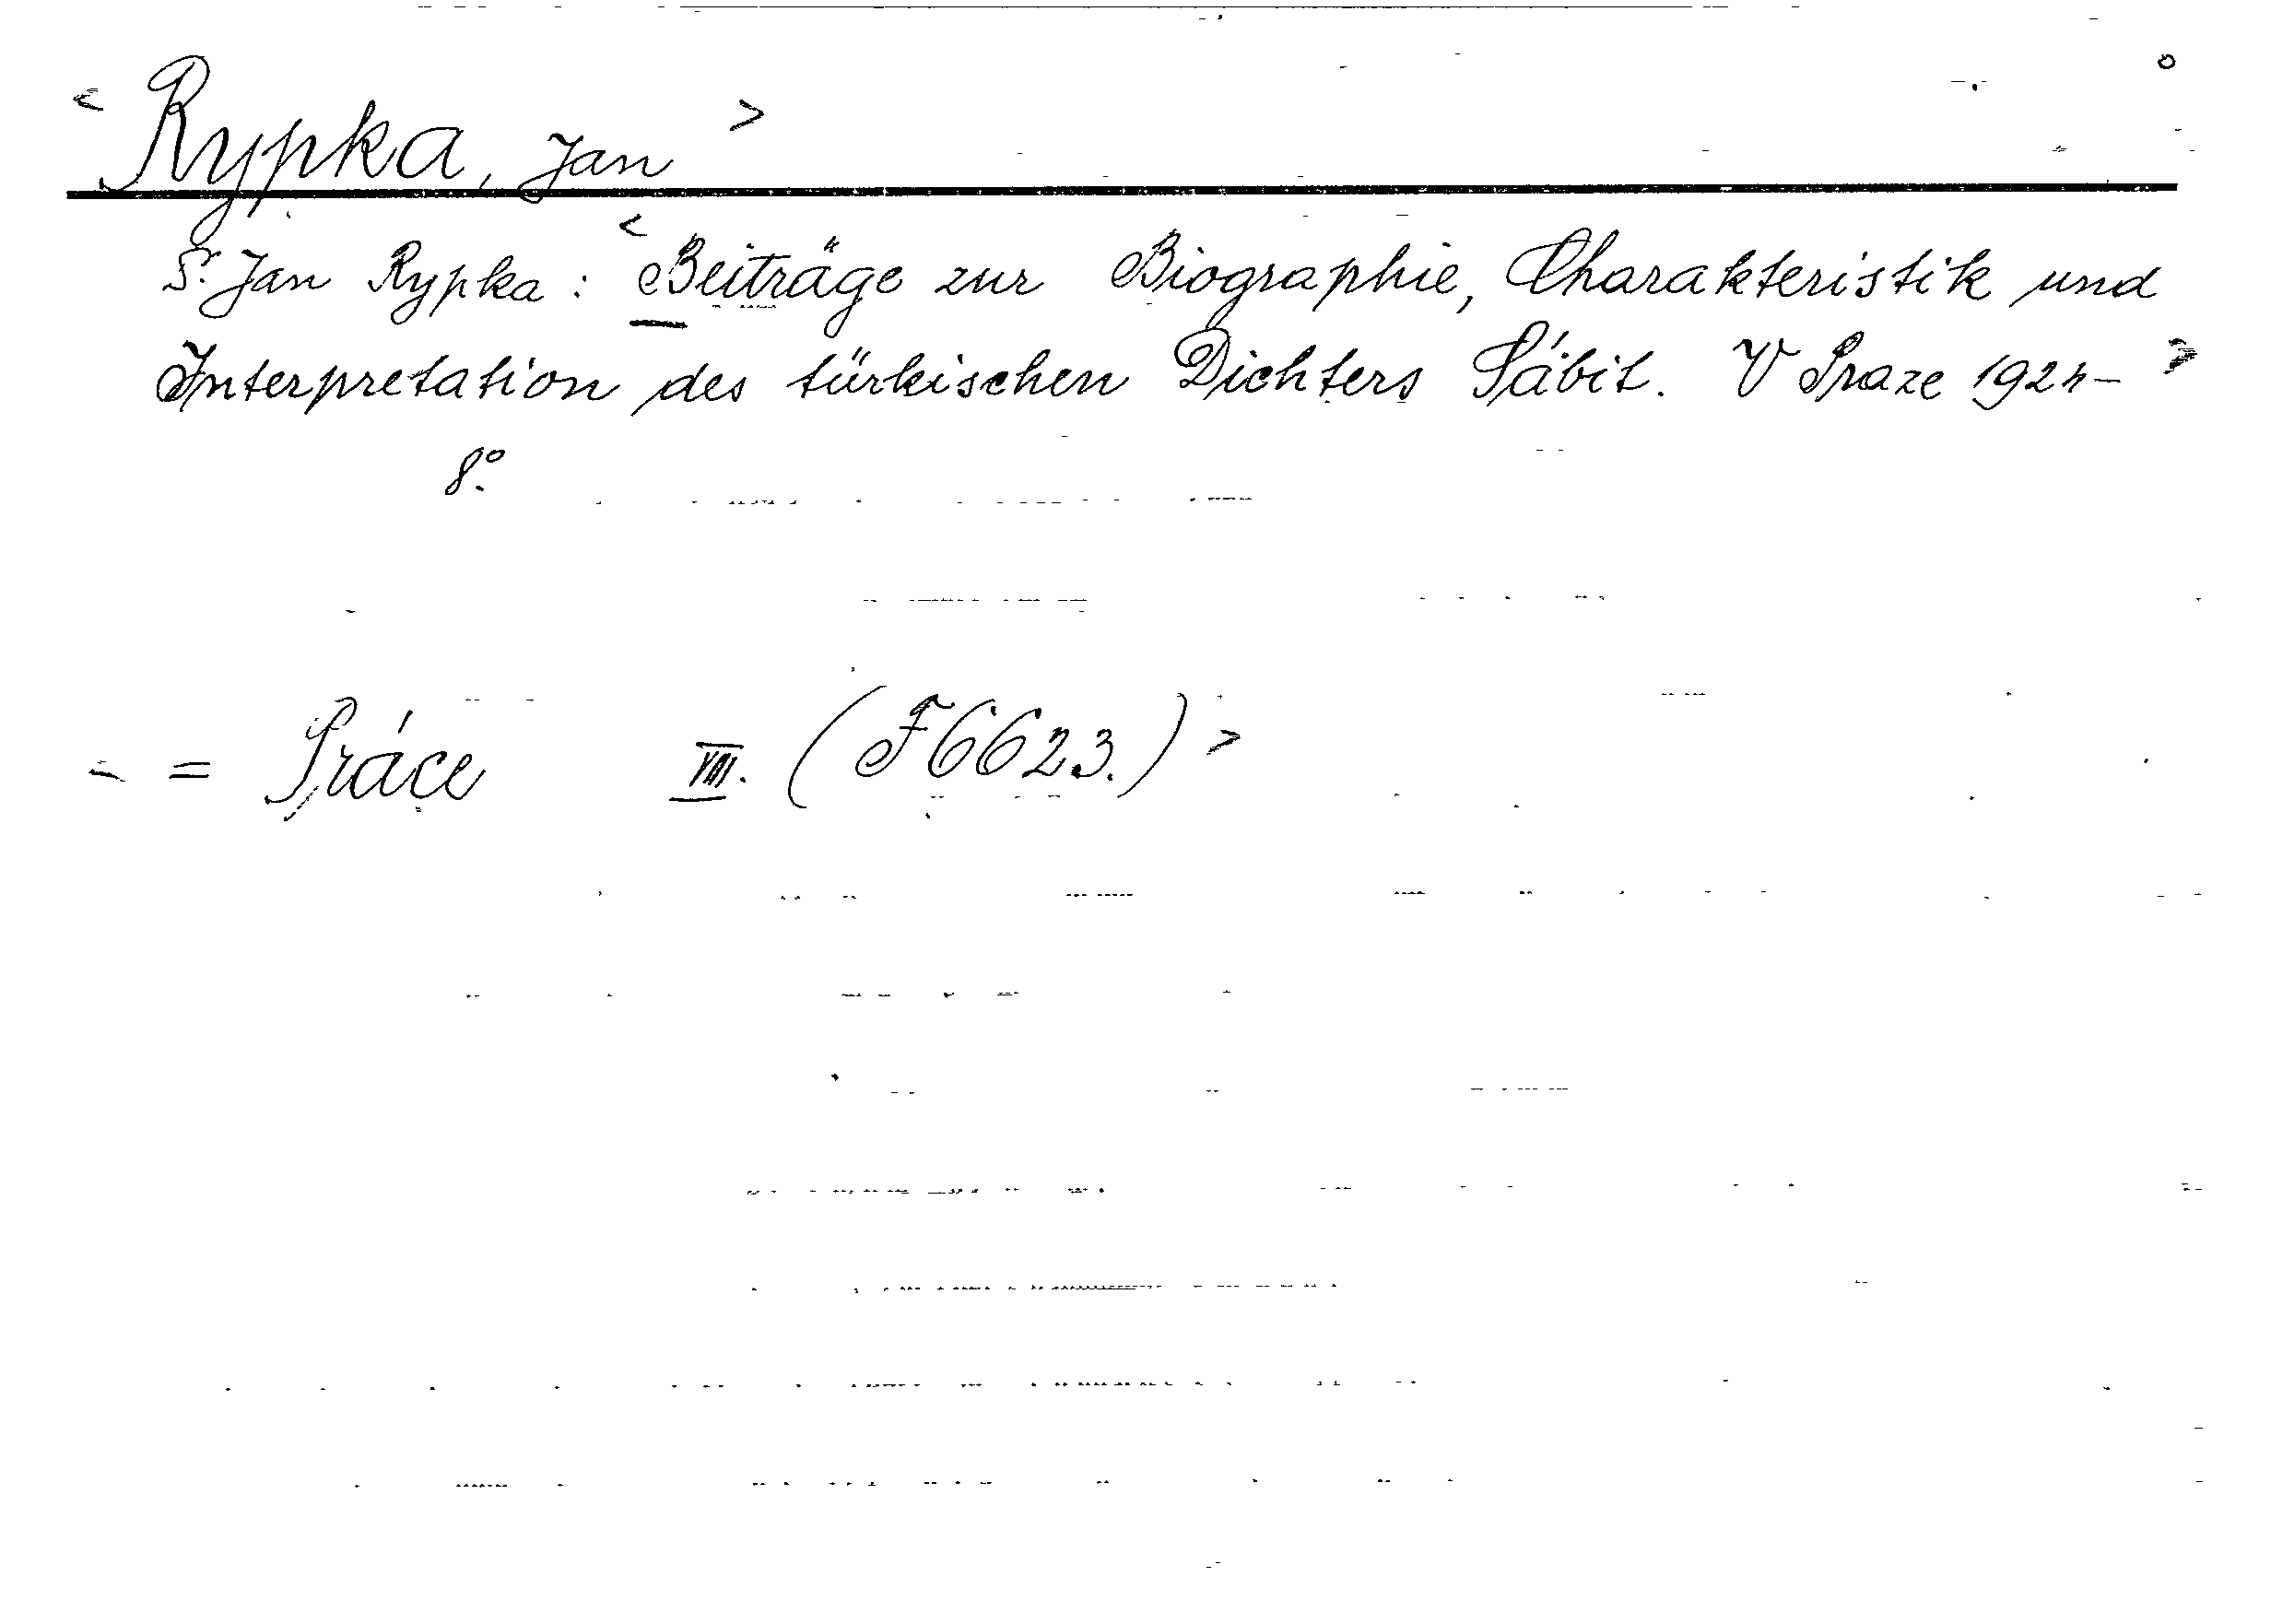 < Rypka, Jan >
Dr. Jan Rypka : < Beiträge zur Biographie, Charakteristik und
Interpretation des türkischen Dichters Sábit. V Praze 1924 – >
8°.
– = Práce VIII. (F6623.) >